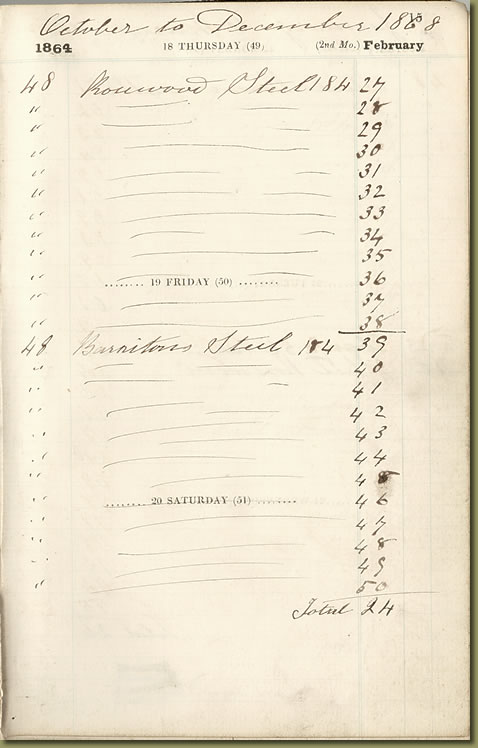 October to December 1868
15
1864 18 THURSDAY (49) (2nd Mo.) February
48 Rosewood Steel 184 27
" 28
" 29
" 30
" 31
" 32
" 33
" 34
" 35
" ........ 19 FRIDAY (50) ........ 36
" 37
" 38
48 Barritons Steel 184 39
" 40
" 41
" 42
" 43
" 44
" 45
" ........ 20 SATURDAY (51) ........ 46
" 47
" 48
" 49
" 50
Total 24